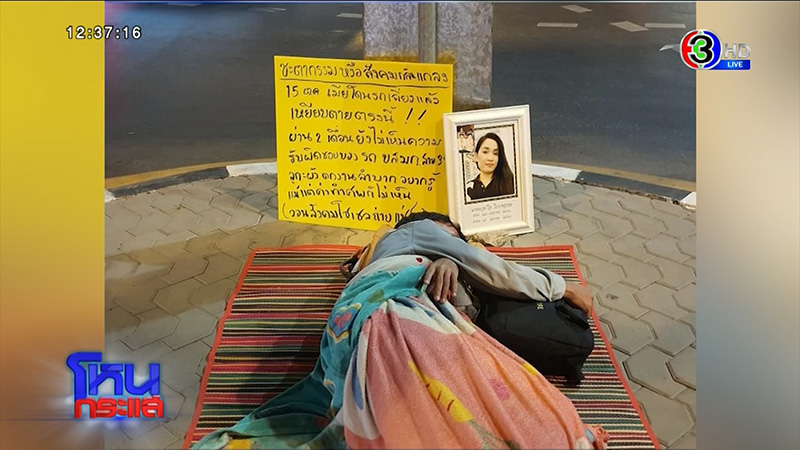 12:37:16
3 HD
LIVE
ชะตากรรม หรือ สังคมเล่นตลก
15 ตค เมียโดนรถเลี้ยวแล้ว
เหยียบตายตรงนี้ !!
ผ่าน 2 เดือน ยังไม่เห็นความ
รับผิดชอบของ รถ ขสมก สาย 3
ตกงานลำบาก อยากรู้
แม้แต่ค่าทำศพก็ไม่เห็น
(วอนสังคมโซเชล
โหน
กระแส